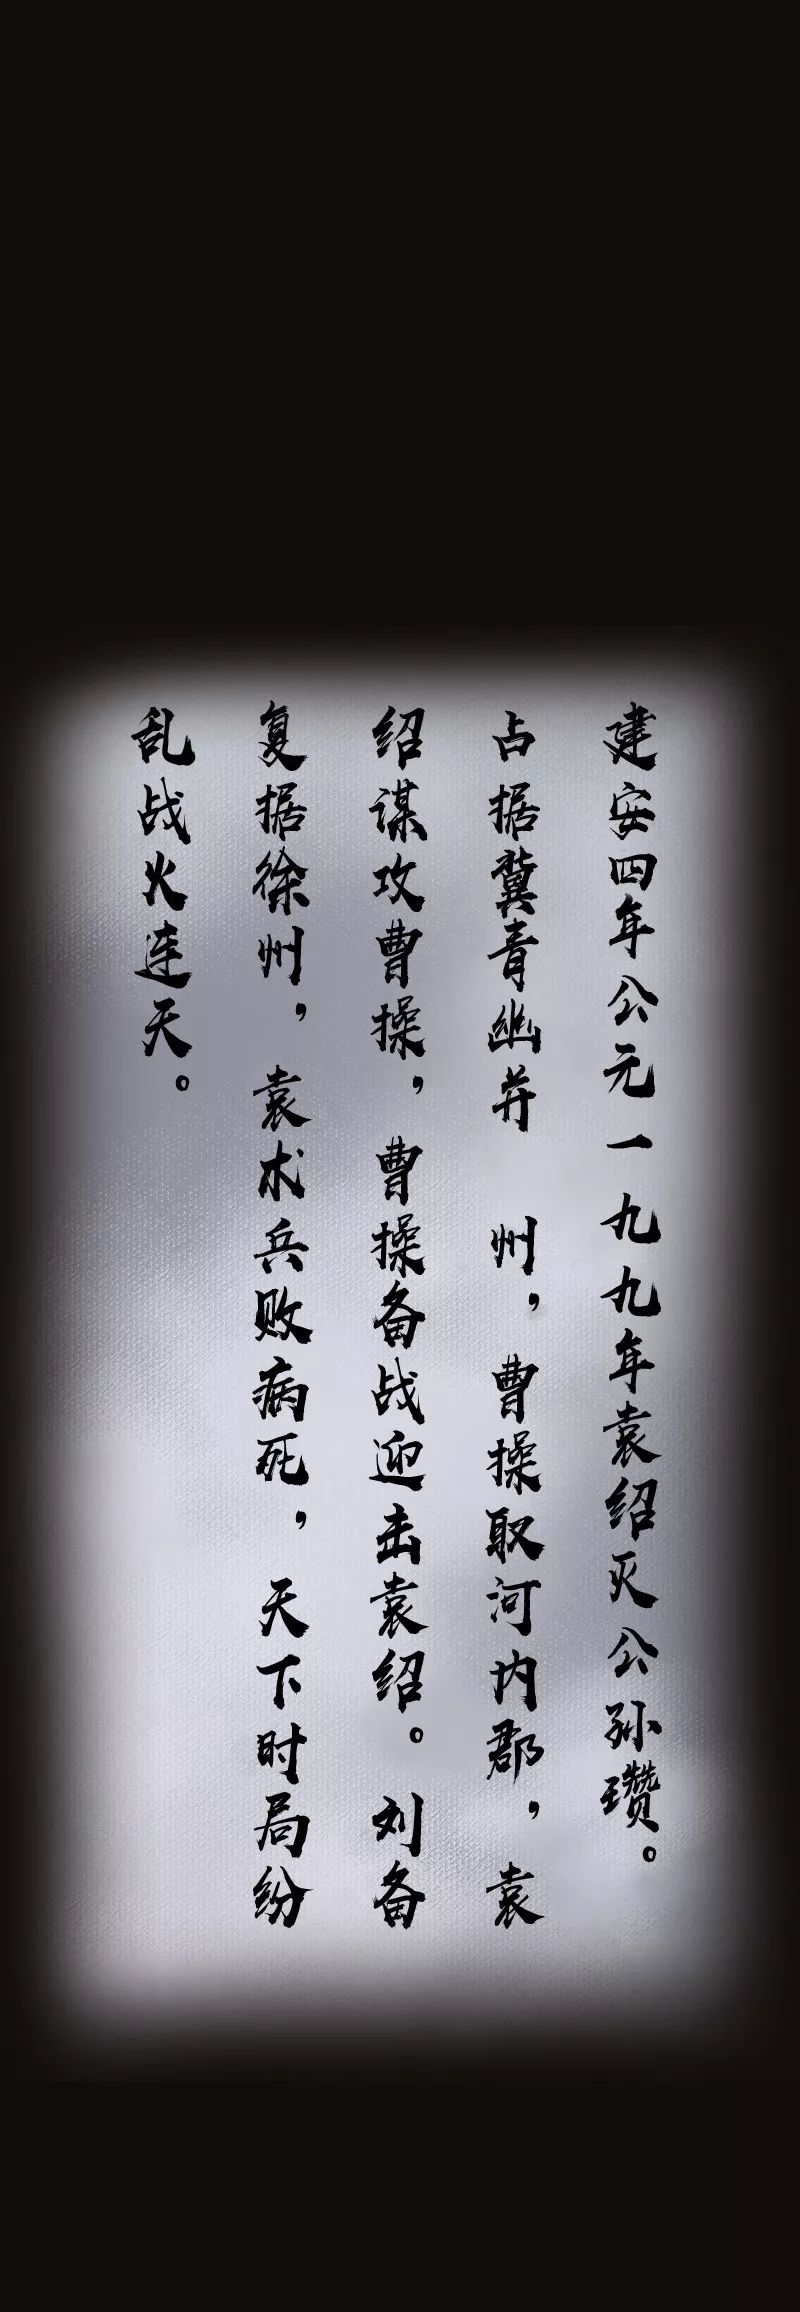 建安四年公元一九九年袁绍灭公孙瓒。
占据冀青幽并 州，曹操取河内郡，袁
绍谋攻曹操，曹操备战迎击袁绍。刘备
复据徐州，袁术兵败病死，天下时局纷
乱战火连天。